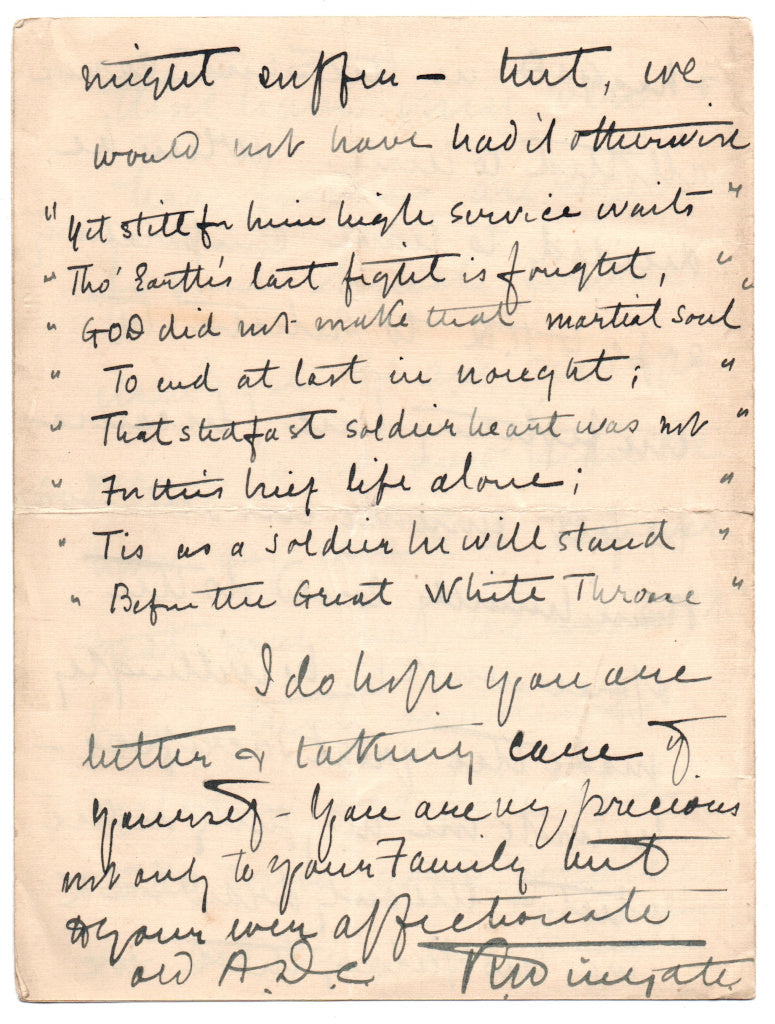 might suffer — but, we
would not have had it otherwise
" Yet still for him high service waits "
" Tho' Earth's last fight is fought, "
" GOD did not make that martial soul "
" To end at last in nought; "
" That stedfast soldier heart was not "
" For this brief life alone; "
" Tis as a soldier he will stand "
" Before the Great White Throne "
I do hope you are
better & taking care of
yourself - You are very precious
not only to your Family but
to your ever affectionate
old A.D.C. R Wingate